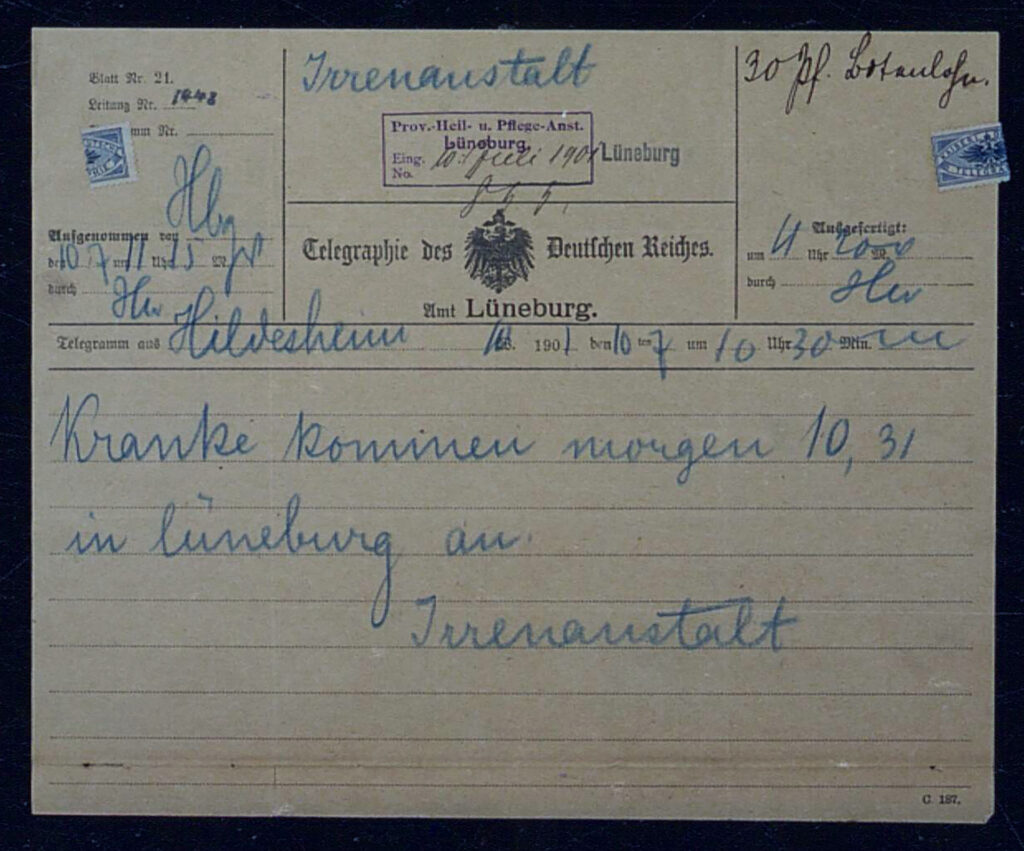 Blatt Nr. 21.
Leitung Nr. 1448
mm Nr.
Irrenanstalt
Prov.-Heil- u. Pflege-Anst.
Lüneburg.
Eing. 10. Juli 1901
No.
Lüneburg
30 Pf. Botenlohn.
Aufgenommen von Hbg
den 10 7 um 11 Uhr 15 M.
durch
Telegraphie des Deutschen Reiches.
Amt Lüneburg.
Ausgefertigt:
um 11 Uhr M.
durch
Telegramm aus Hildesheim 1901 den 10 ten 7 um 10 Uhr 30 Min.
Kranke kommen morgen 10,31
in Lüneburg an.
Irrenanstalt
C. 187.